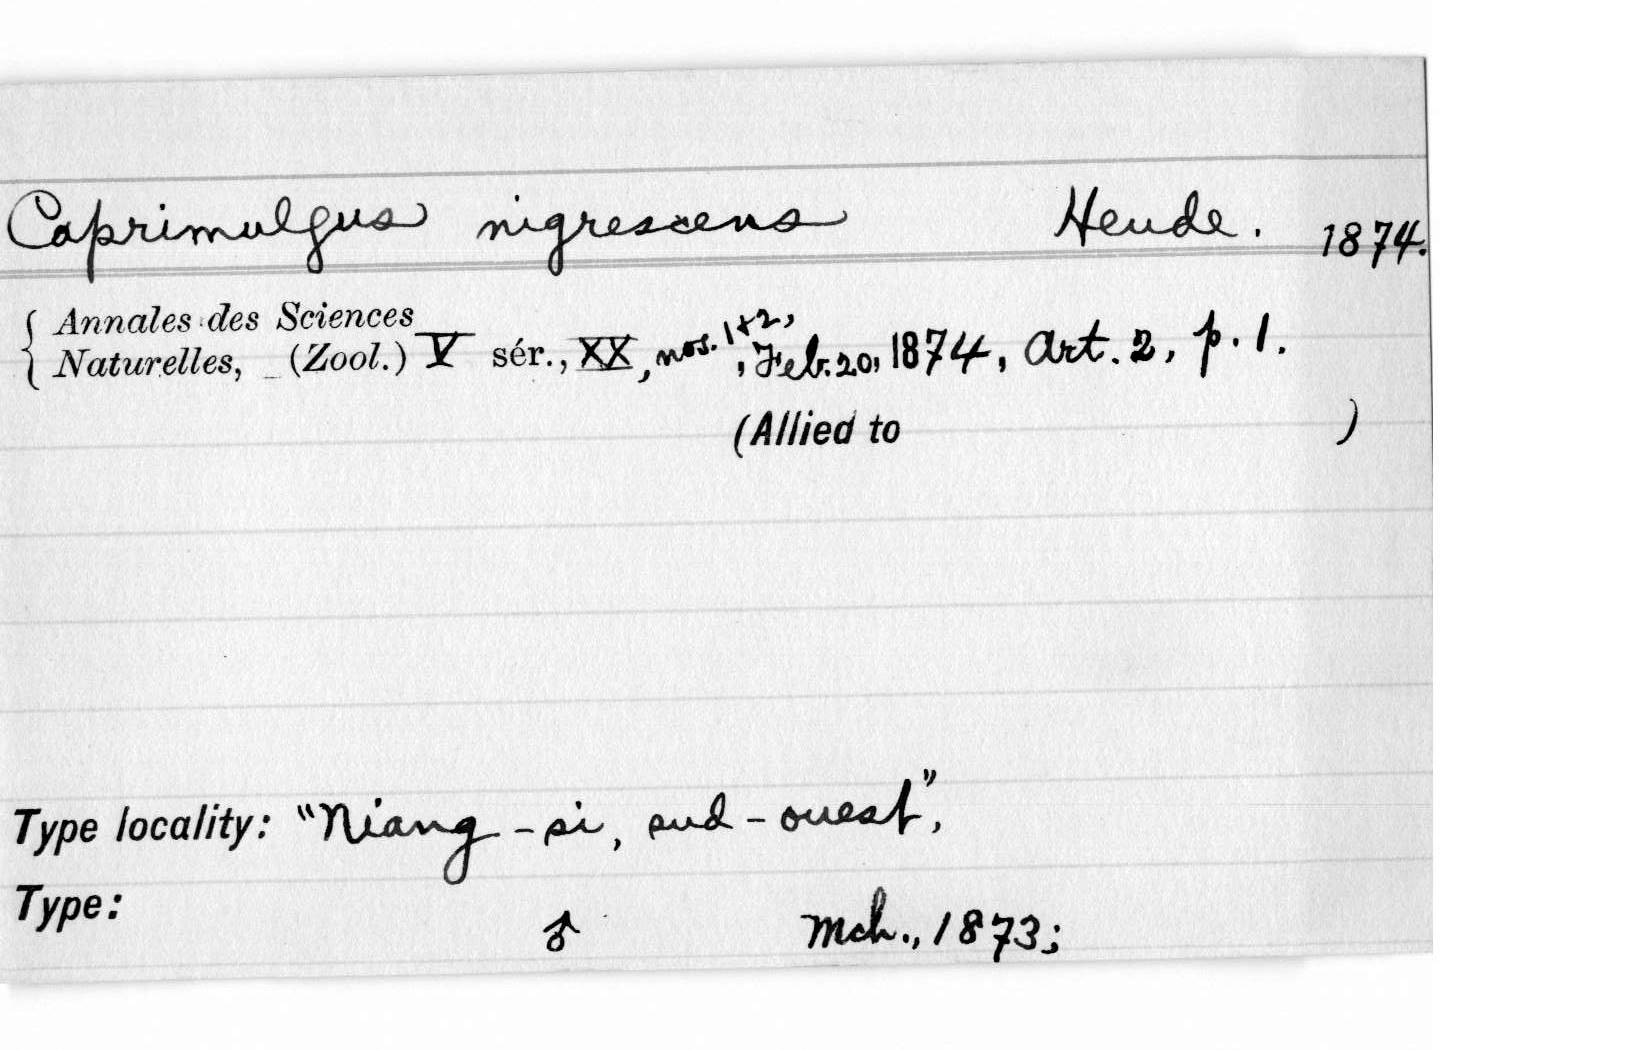 Caprimulgus nigrescens Heude. 1874.
Annales des Sciences
Naturelles, (Zool.) V sér., XX, nos. 1+2, , Feb. 20, 1874, Art. 2, p. 1.
(Allied to )
Type locality: "Niang-si, sud-ouest",
Type:
♂ Mch., 1873;